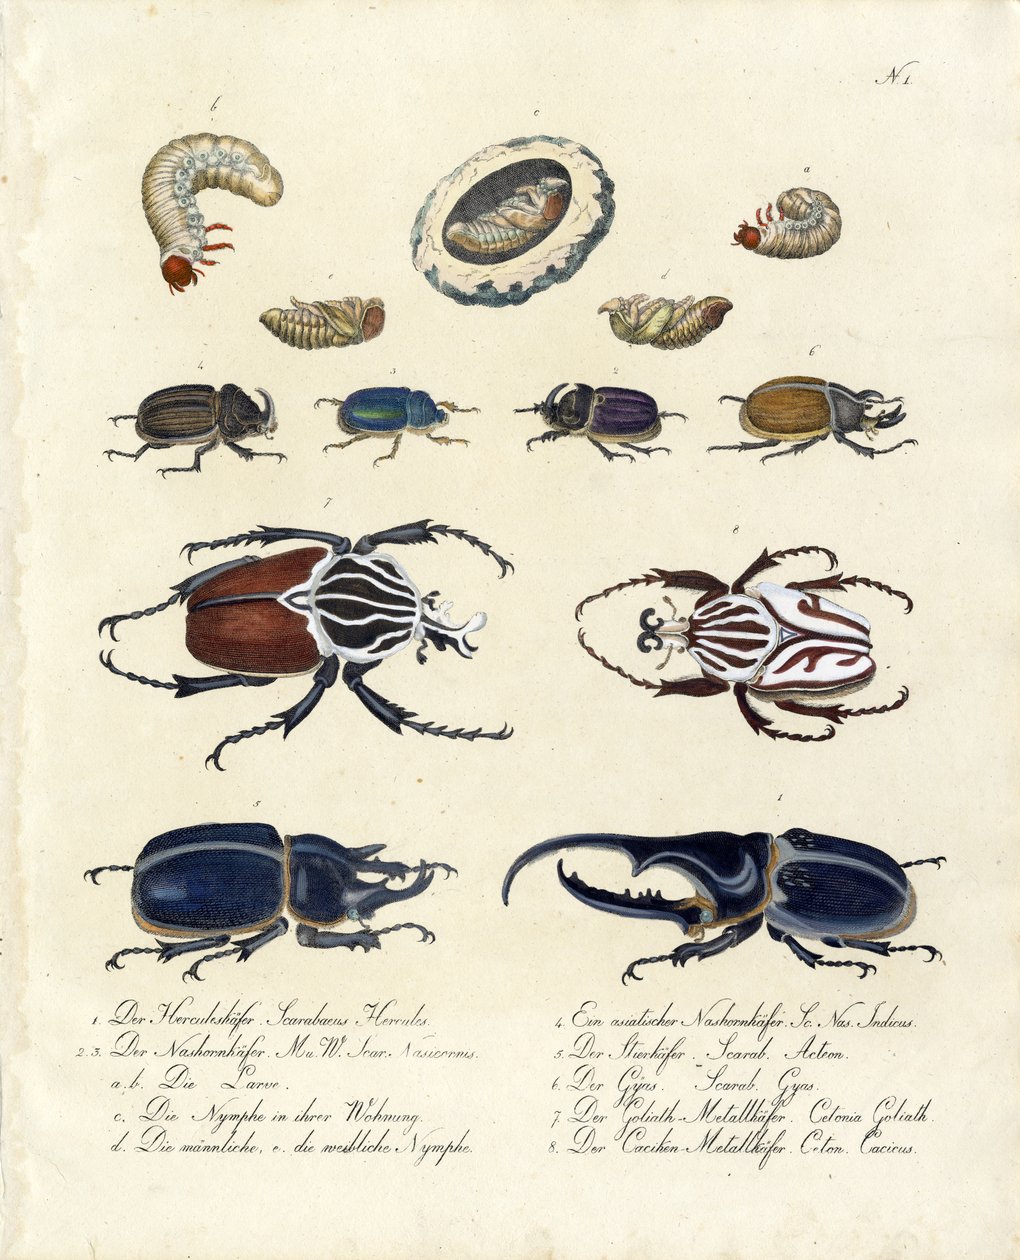 N. 1.
b
c
a
e
d
4
3
2
6
7
8
5
1
1. Der Herculeskäfer. Scarabaeus Hercules.
2.3. Der Nashornkäfer. M u. W. Scar. Nasicornis.
a. b. Die Larve.
c. Die Nymphe in ihrer Wohnung.
d. Die männliche, e. die weibliche Nymphe.
4. Ein asiatischer Nashornkäfer. Sc. Nas. Indicus.
5. Der Stierkäfer. Scarab. Acteon.
6. Der Gÿas. Scarab. Gyas.
7. Der Goliath-Metallkäfer. Cetonia Goliath.
8. Der Caciken-Metallkäfer. Ceton. Cacicus.